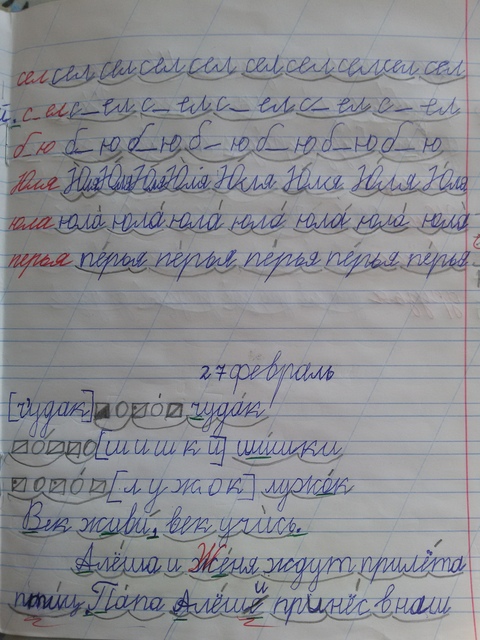 сел сел сел сел сел сел сел сел сел сел
с_ел с_ел с_ел с_ел с_ел с_ел с_ел
б_ю б_ю б_ю б_ю б_ю б_ю б_ю
Юля Юля Юля Юля Юля Юля Юля Юля Юля
юла юла́ юла́ юла́ юла́ юла́ юла́ юла́
перья пе́рья пе́рья пе́рья пе́рья пе́рья
27 февраль
[чудак] чуда́к
[шишки] ши́шки
[лужок] лужо́к
Век живи́, век учи́сь.
Алёша и Же́ня ждут прилёта
птиц. Па́па Алёши принёс в наш